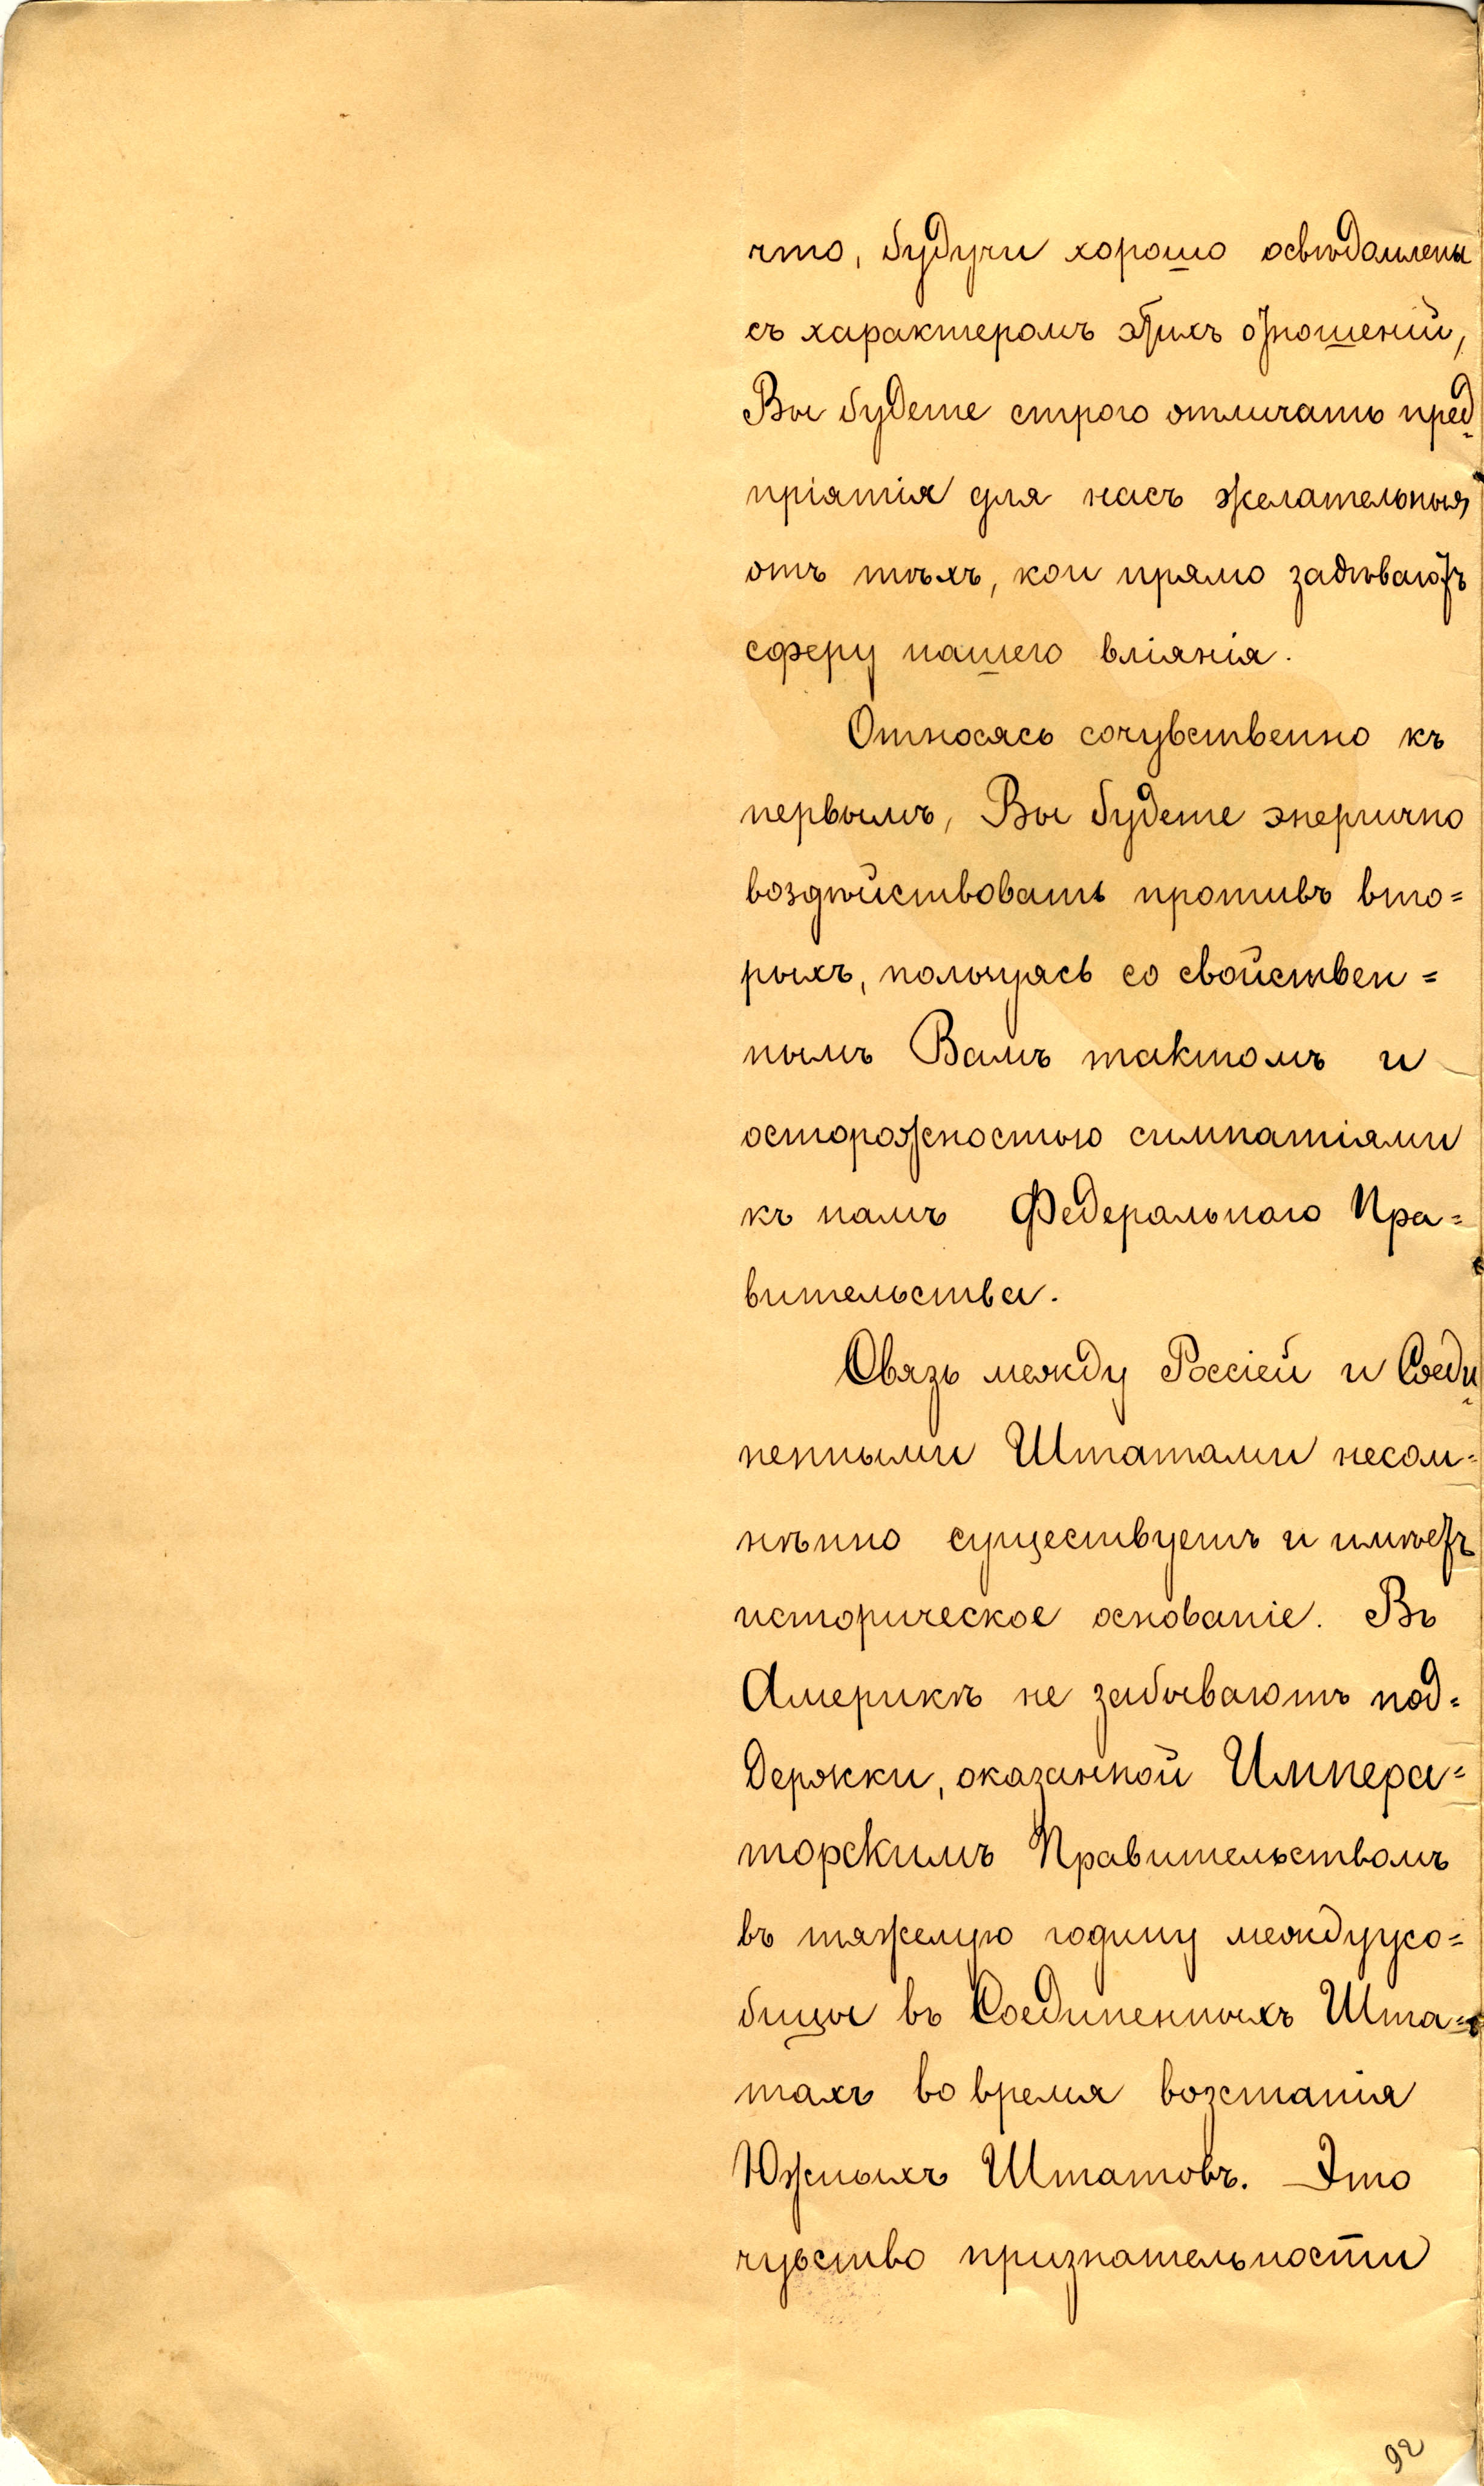 что, будучи хорошо освѣдомлены
съ характеромъ этихъ отношеній,
Вы будете строго отличать пред-
пріятія для насъ желательныя,
отъ тѣхъ, кои прямо задѣваютъ
сферу нашего вліянія.
Относясь сочувственно къ
первымъ, Вы будете энергично
воздѣйствовать противъ вто=
рыхъ, пользуясь со свойствен=
нымъ Вамъ тактомъ и
осторожностью симпатіями
къ намъ Федеральнаго Пра=
вительства.
Связь между Россіей и Соеди-
ненными Штатами несом=
нѣнно существуетъ и имѣетъ
историческое основаніе. Въ
Америкѣ не забываютъ под=
держки, оказанной Импера=
торскимъ Правительствомъ
въ тяжелую годину междуусо=
бицы въ Соединенныхъ Шта=
тахъ во время возстанія
Южныхъ Штатовъ. Это
чувство признательности
92